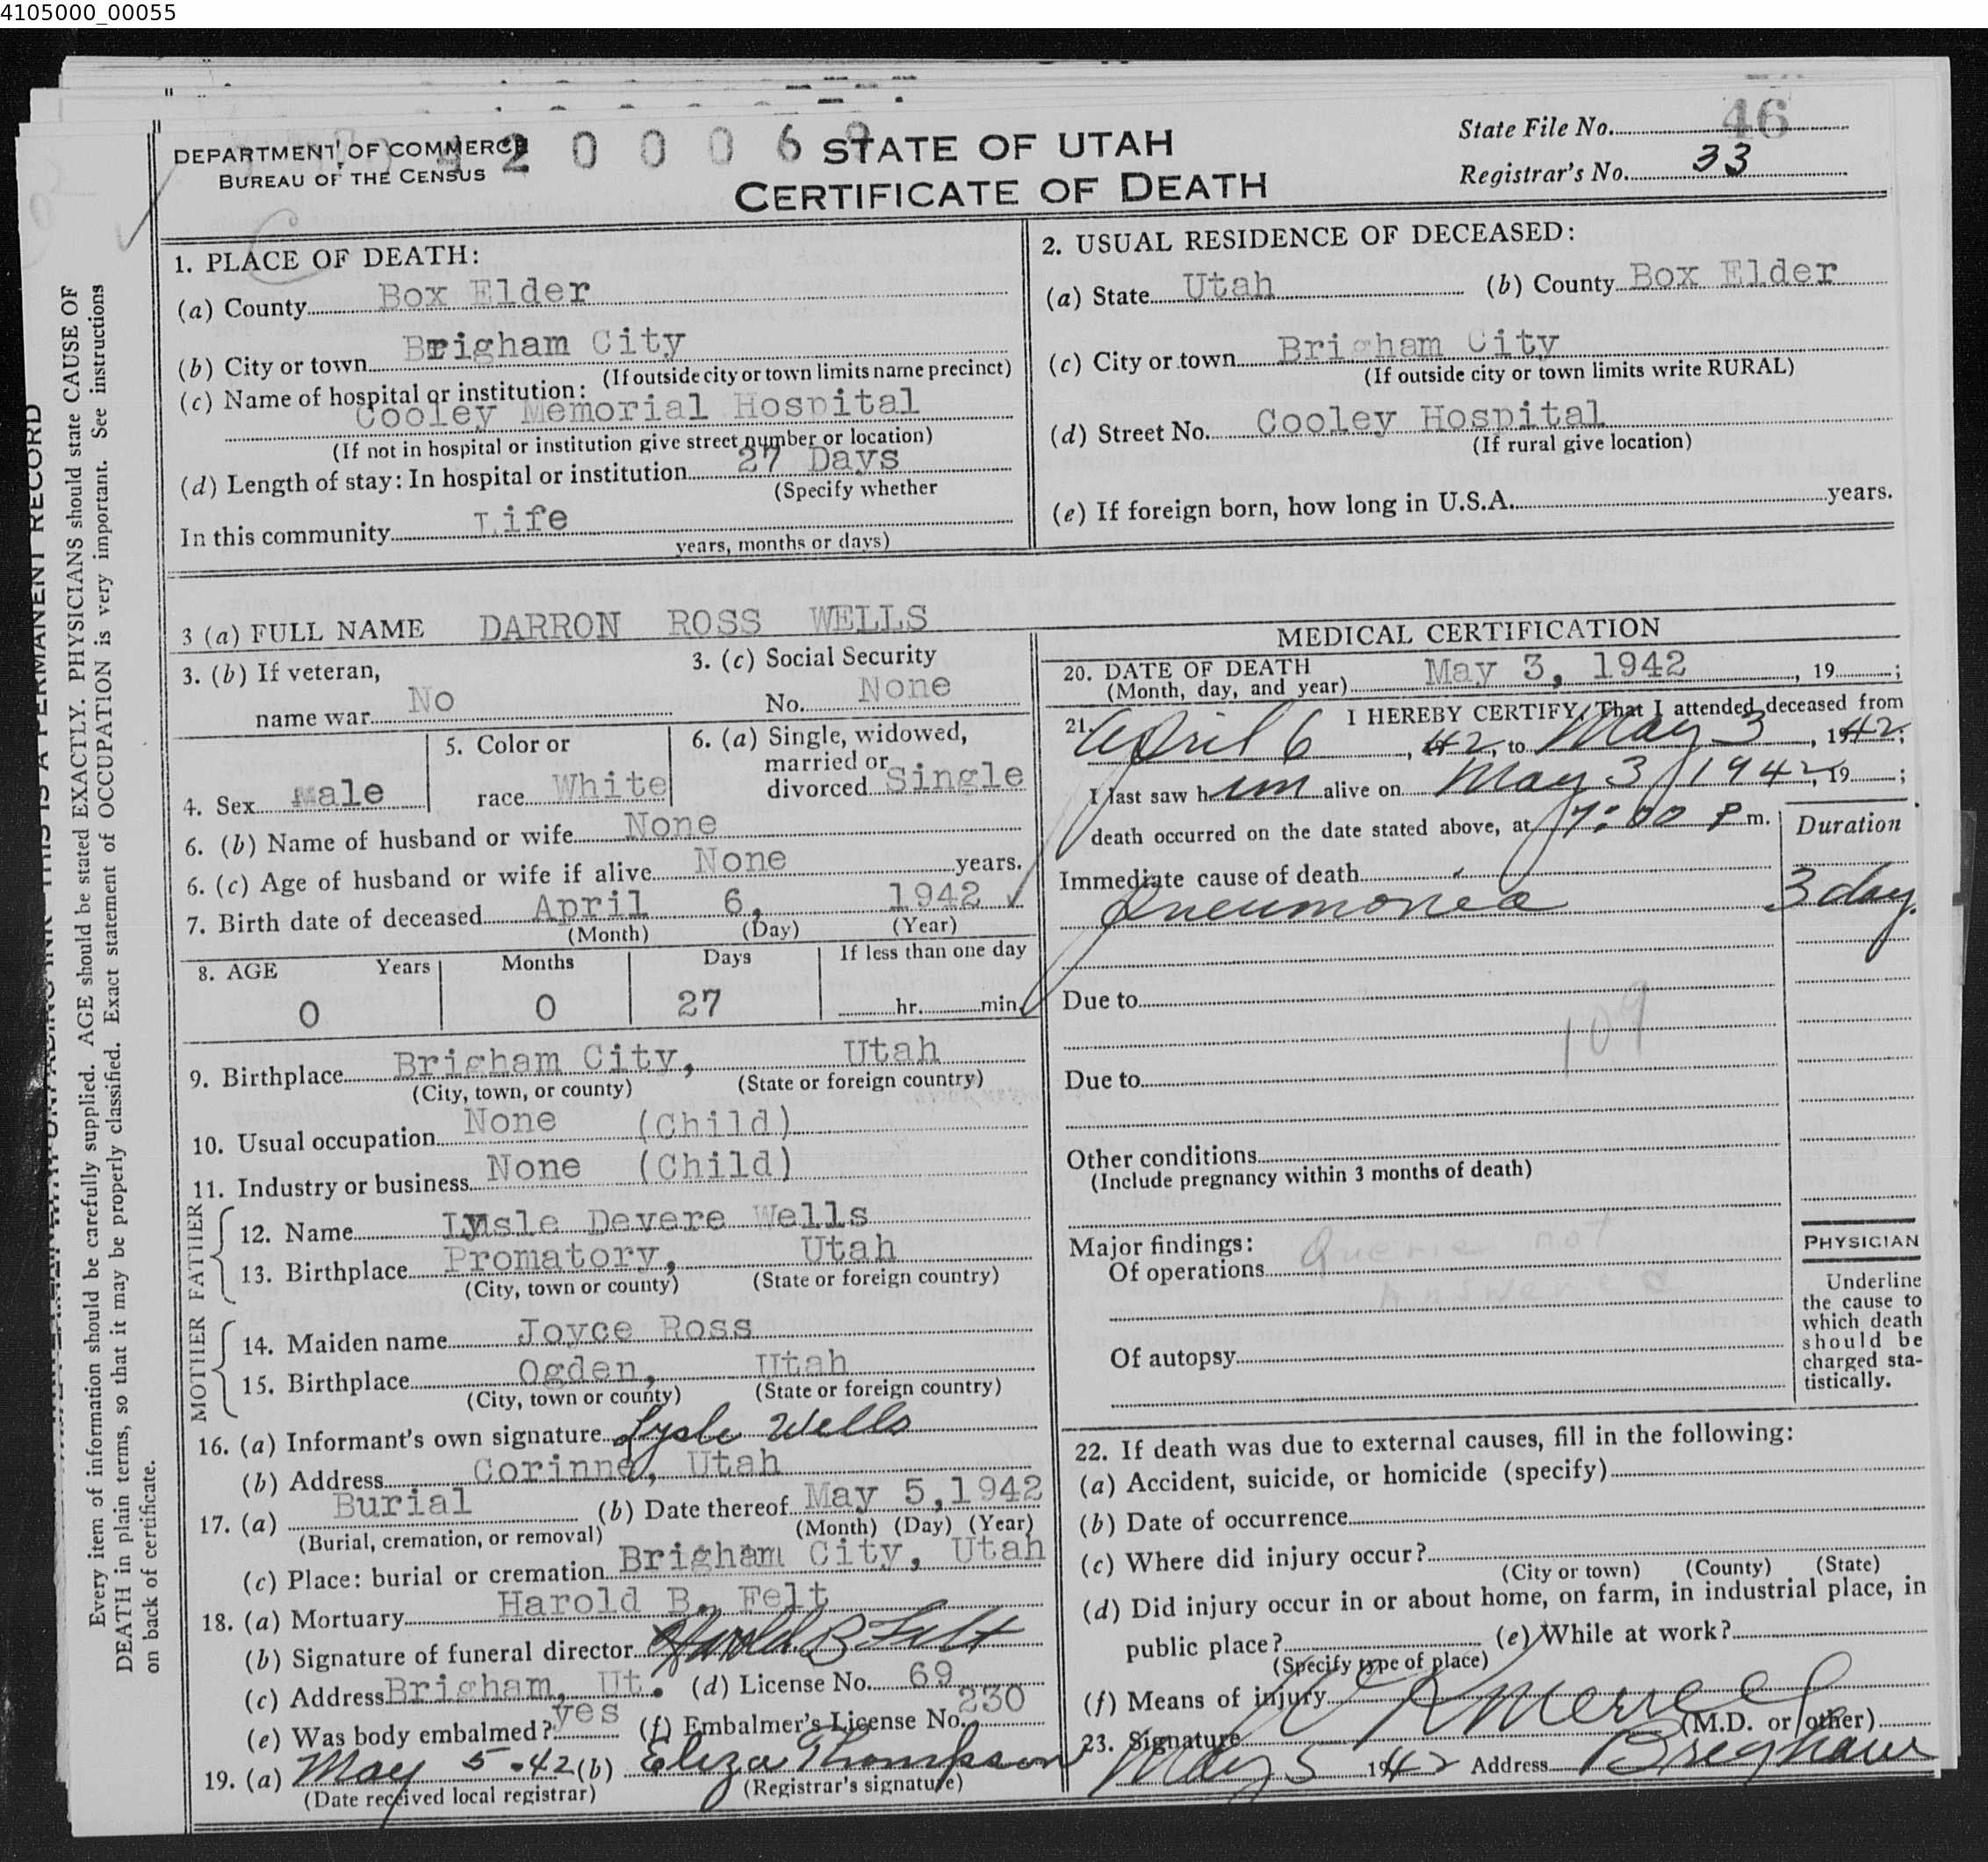 4105000_00055
DEPARTMENT OF COMMERCE
BUREAU OF THE CENSUS
2 0 0 0 6
STATE OF UTAH
CERTIFICATE OF DEATH
State File No. 46
Registrar's No. 33
1. PLACE OF DEATH:
(a) County Box Elder
(b) City or town Brigham City
(If outside city or town limits name precinct)
(c) Name of hospital or institution:
Cooley Memorial Hospital
(If not in hospital or institution give street number or location)
(d) Length of stay: In hospital or institution 27 Days
(Specify whether
In this community Life
years, months or days)
2. USUAL RESIDENCE OF DECEASED:
(a) State Utah (b) County Box Elder
(c) City or town Brigham City
(If outside city or town limits write RURAL)
(d) Street No. Cooley Hospital
(If rural give location)
(e) If foreign born, how long in U.S.A. years.
3 (a) FULL NAME DARRON ROSS WELLS
3. (b) If veteran,
name war No
3. (c) Social Security
No. None
4. Sex Male
5. Color or
race White
6. (a) Single, widowed,
married or
divorced Single
6. (b) Name of husband or wife None
6. (c) Age of husband or wife if alive None years.
7. Birth date of deceased April 6, 1942
(Month) (Day) (Year)
8. AGE Years Months Days If less than one day
0 0 27 hr. min.
9. Birthplace Brigham City, Utah
(City, town, or county) (State or foreign country)
10. Usual occupation None (Child)
11. Industry or business None (Child)
FATHER
12. Name Lysle Devere Wells
13. Birthplace Promatory, Utah
(City, town or county) (State or foreign country)
MOTHER
14. Maiden name Joyce Ross
15. Birthplace Ogden, Utah
(City, town or county) (State or foreign country)
16. (a) Informant's own signature Lysle Wells
(b) Address Corinne, Utah
17. (a) Burial (b) Date thereof May 5, 1942
(Burial, cremation, or removal) (Month) (Day) (Year)
(c) Place: burial or cremation Brigham City, Utah
18. (a) Mortuary Harold B. Felt
(b) Signature of funeral director Harold B Felt
(c) Address Brigham, Ut. (d) License No. 69
(e) Was body embalmed? yes (f) Embalmer's License No. 230
19. (a) May 5-42 (b) Eliza Thompson
(Date received local registrar) (Registrar's signature)
MEDICAL CERTIFICATION
20. DATE OF DEATH
(Month, day, and year) May 3, 1942, 19 ;
21. I HEREBY CERTIFY, That I attended deceased from
April 6, 42, to May 3, 1942;
I last saw him alive on May 3, 1942, 19 ;
death occurred on the date stated above, at 7:00 P m.
Duration
Immediate cause of death
Pneumonia 3 day.
Due to
109
Due to
Other conditions
(Include pregnancy within 3 months of death)
Major findings:
Of operations
Queries not
Answered
Of autopsy
PHYSICIAN
Underline
the cause to
which death
should be
charged sta-
tistically.
22. If death was due to external causes, fill in the following:
(a) Accident, suicide, or homicide (specify)
(b) Date of occurrence
(c) Where did injury occur?
(City or town) (County) (State)
(d) Did injury occur in or about home, on farm, in industrial place, in
public place? (e) While at work?
(Specify type of place)
(f) Means of injury
23. Signature Merrell (M.D. or other)
May 5 1942 Address Brigham
Every item of information should be carefully supplied. AGE should be stated EXACTLY. PHYSICIANS should state CAUSE OF
DEATH in plain terms, so that it may be properly classified. Exact statement of OCCUPATION is very important. See instructions
on back of certificate.
THIS IS A PERMANENT RECORD